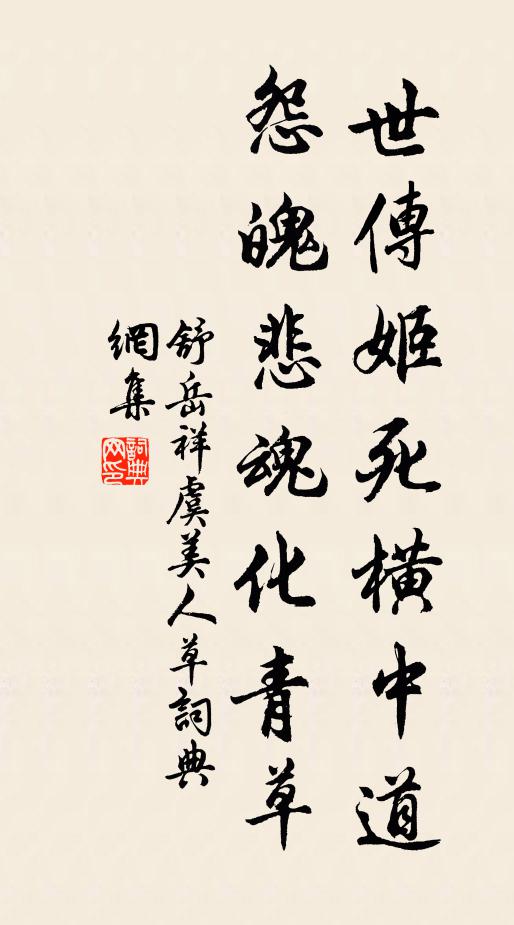 世傳姬死橫中道
怨魄悲魂化青草
舒岳祥虞美人草詞典
網集
詞典網印